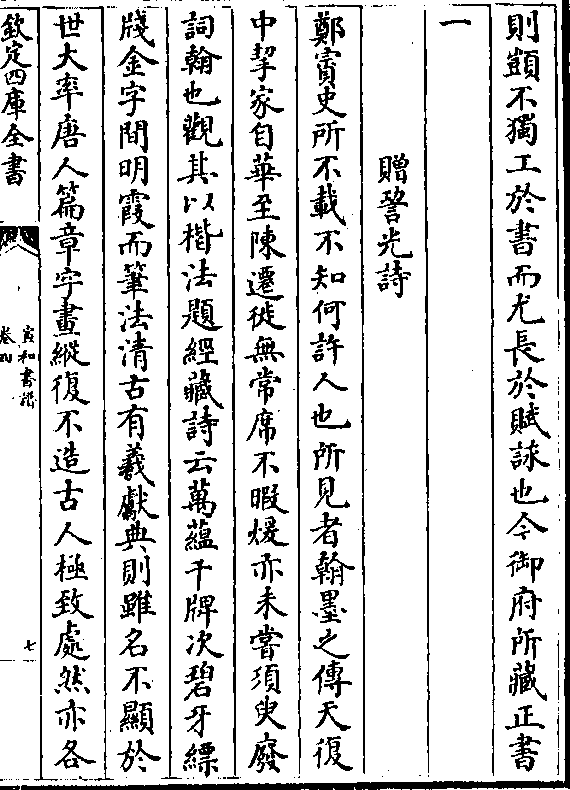 則顗不獨工於書而尤長於賦詠也今御府所藏正書
一
贈䛒光詩
鄭賨史所不載不知何許人也所見者翰墨之傳天復
中挈家自華至陳遷徙無常席不暇煖亦未嘗須臾廢
詞翰也觀其以楷法題經藏詩云萬蘊千牌次碧牙縹
牋金字間明霞而筆法清古有羲獻典則雖名不顯於
世大率唐人篇章字畫縱復不造古人極致處然亦各
欽定四庫全書
宣和書譜
卷四
七